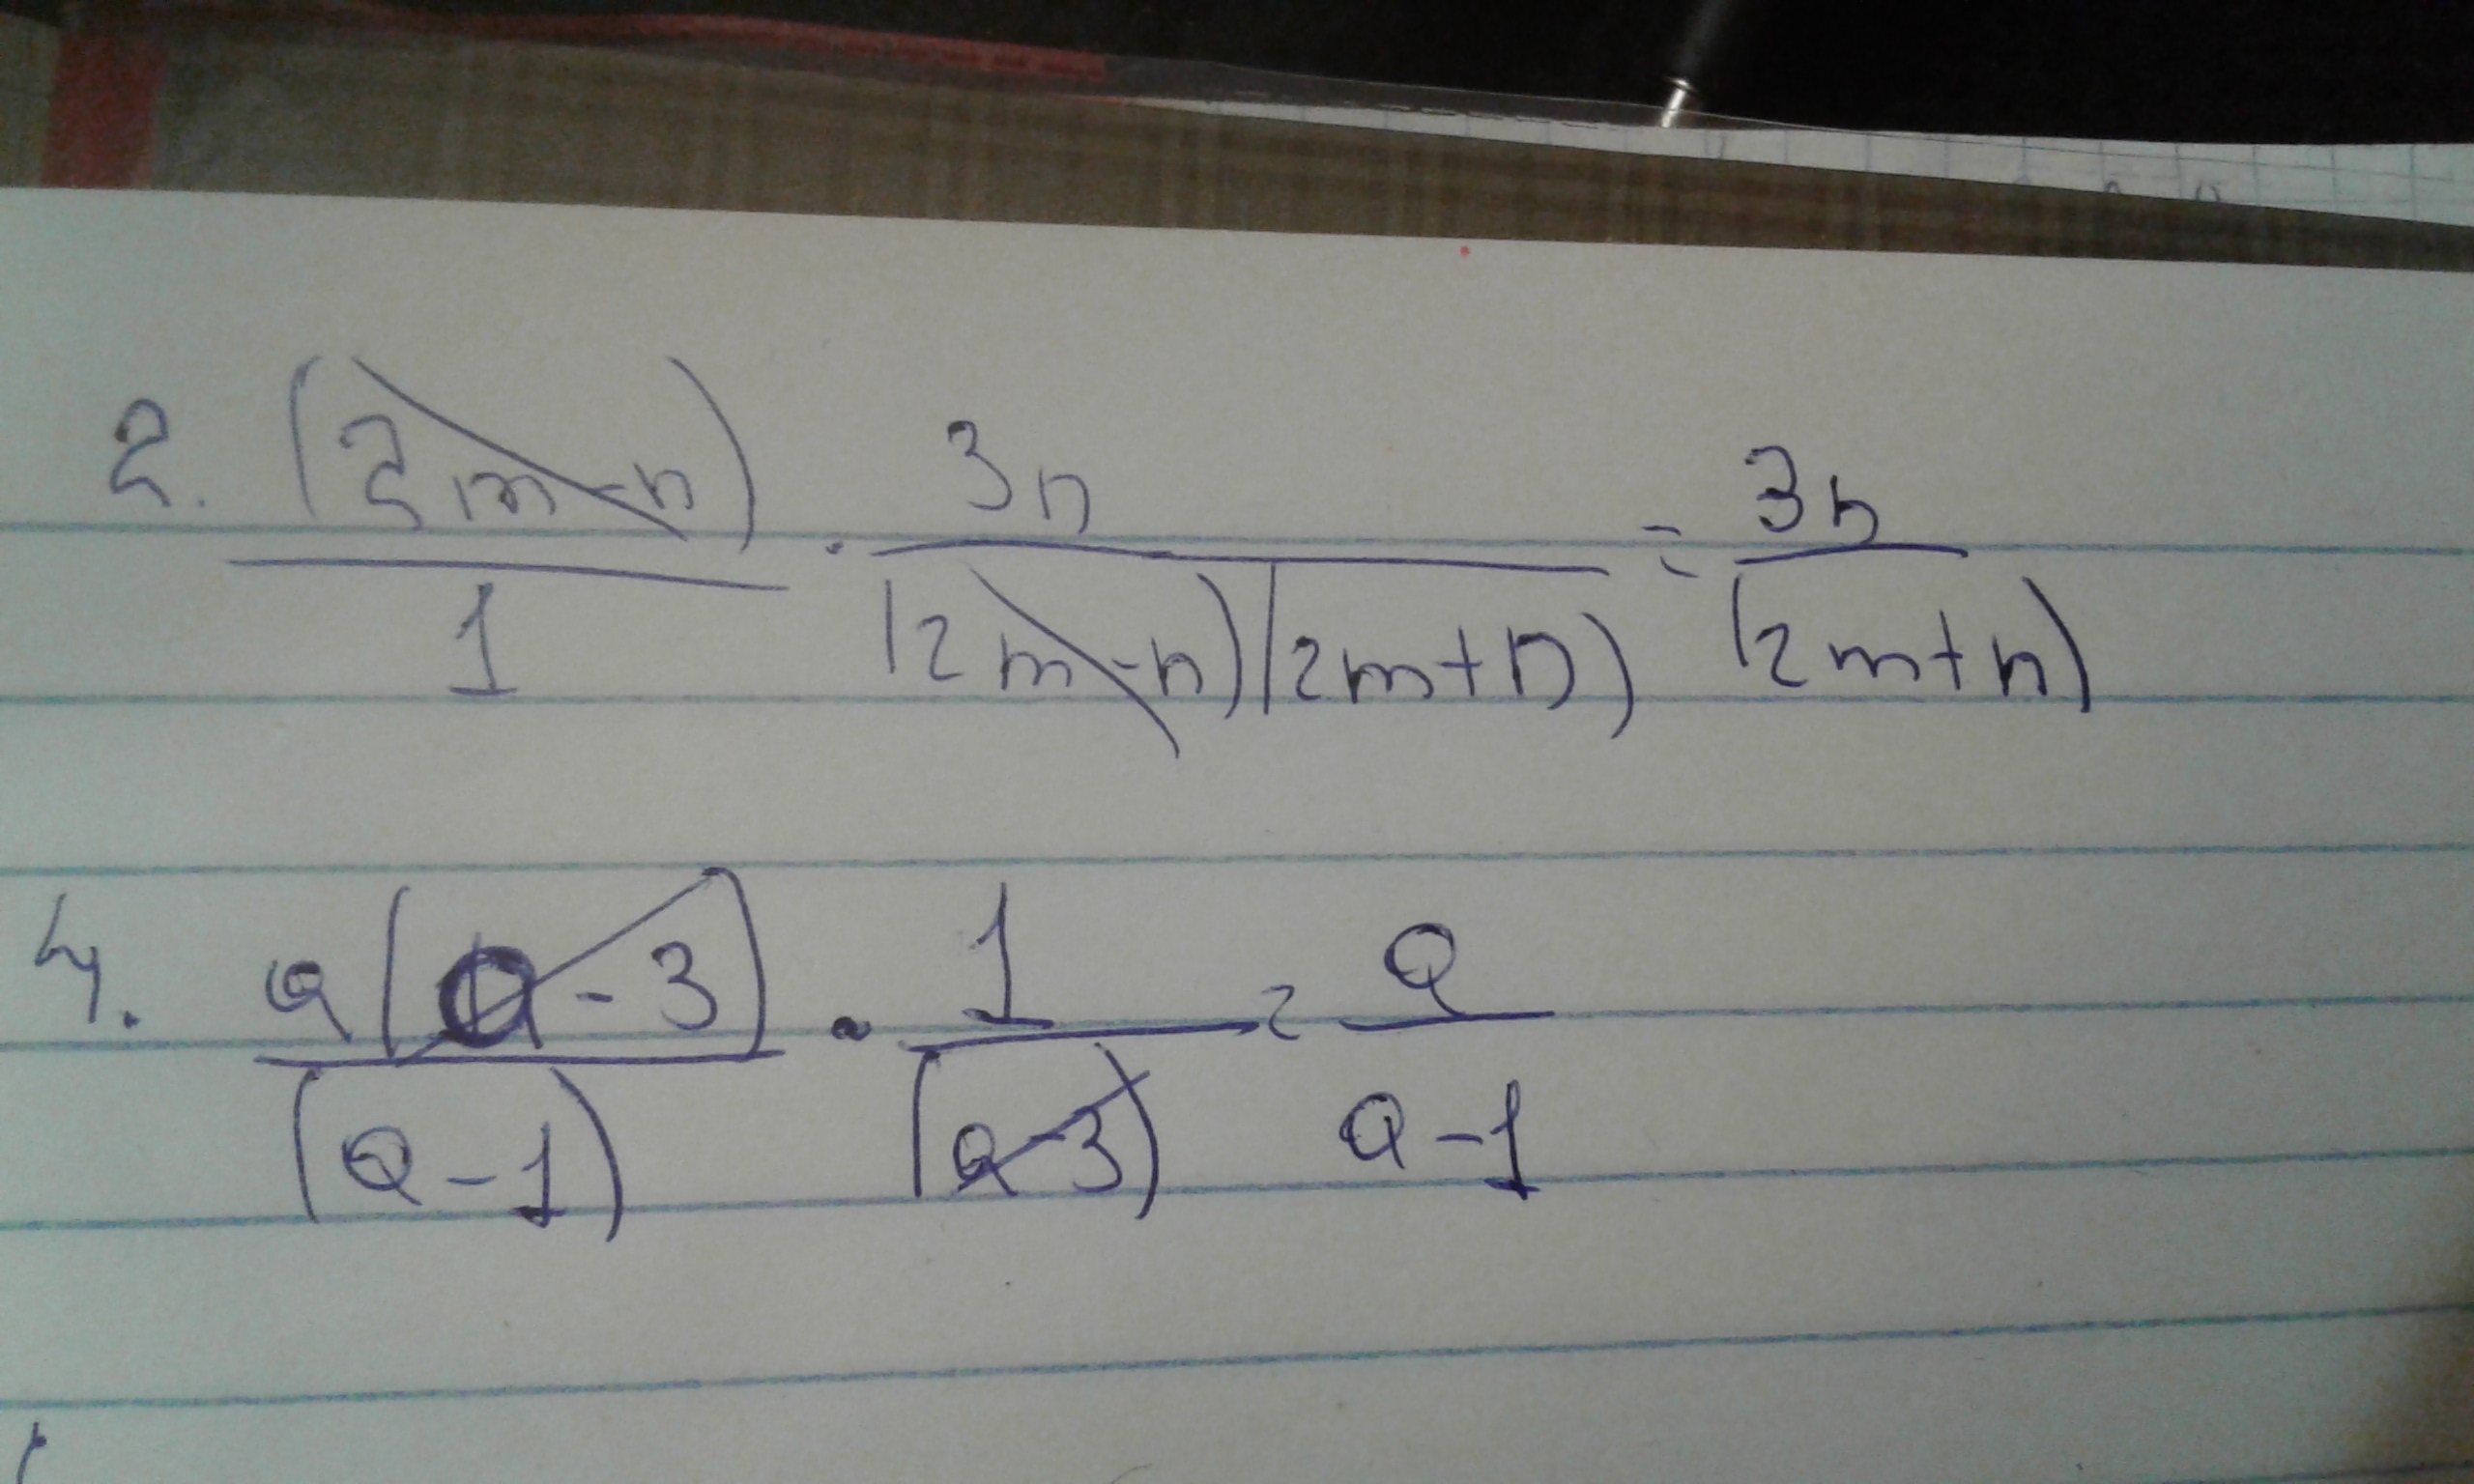 2. (2m-n)/1 · 3n/(2m-n)(2m+n) = 3n/(2m+n)
4. a(a-3)/(a-1) · 1/(a-3) = a/a-1